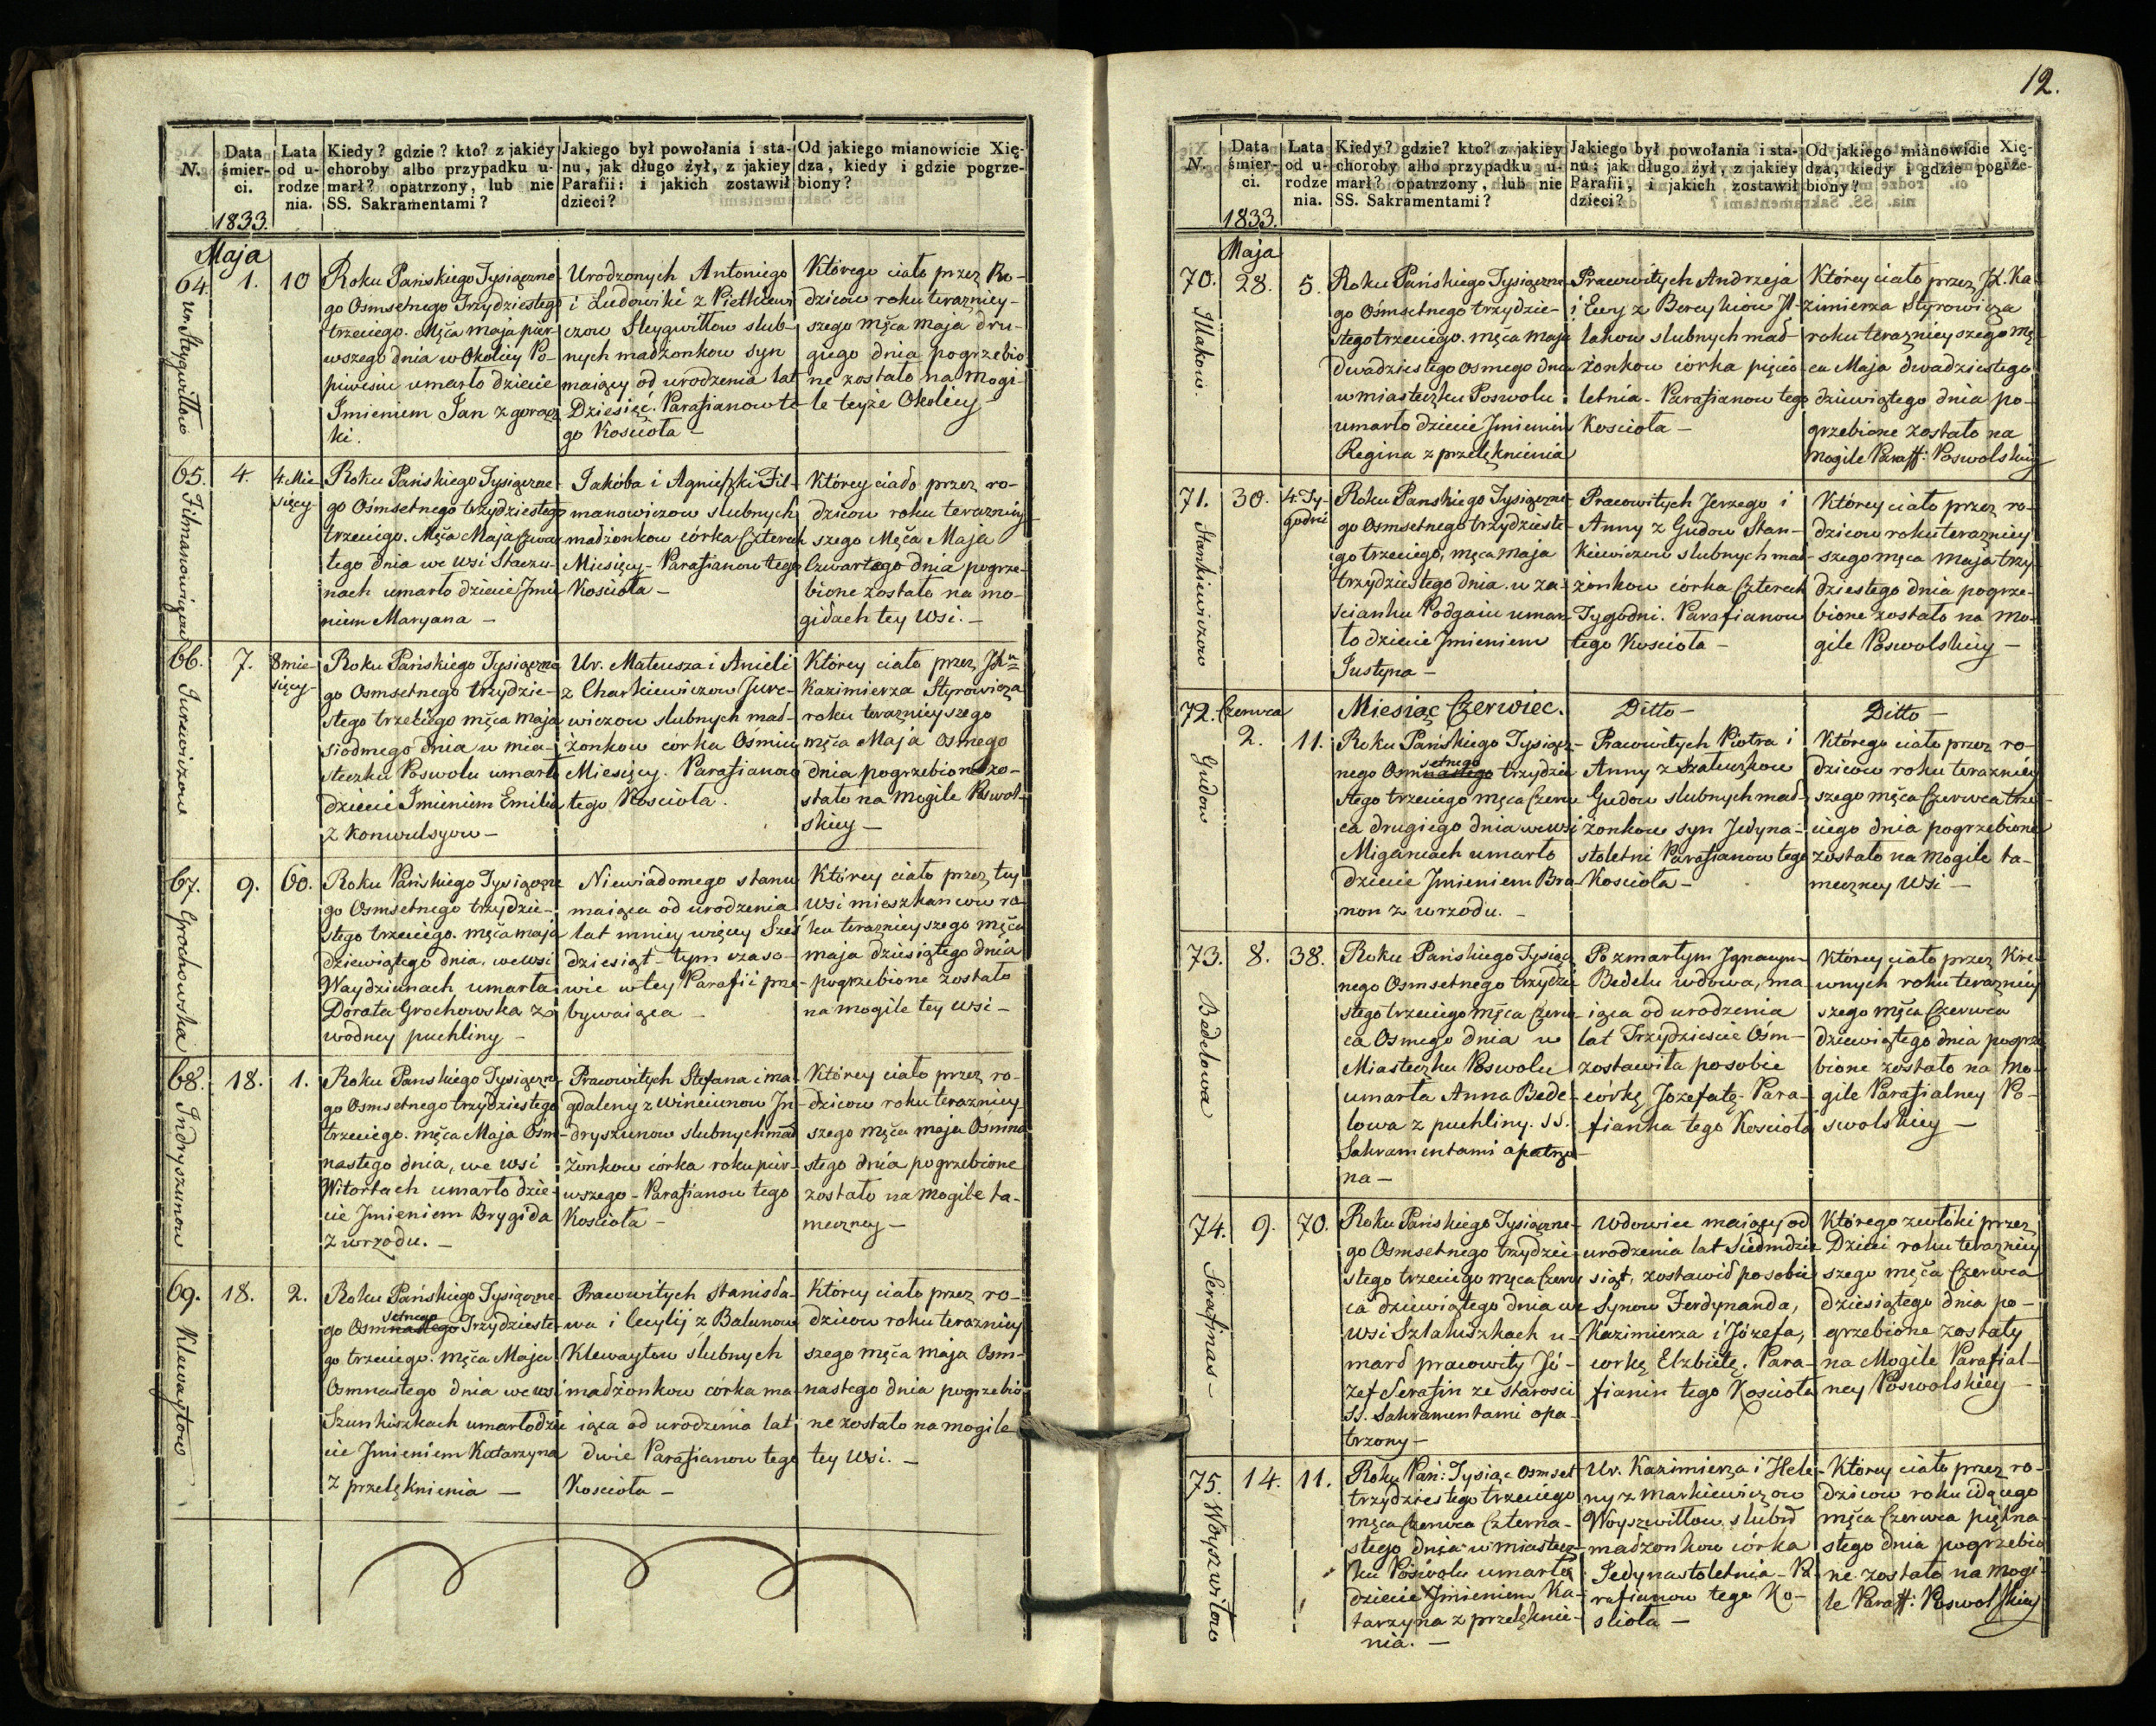 12.
N.
Data śmier-
ci.
1833.
Lata
od u-
rodze
nia.
Kiedy? gdzie? kto? z jakiey
choroby albo przypadku u-
marł? opatrzony, lub nie
SS. Sakramentami?
Jakiego był powołania i sta-
nu, jak długo żył, z jakiey
Parafii: i jakich zostawił
dzieci?
Od jakiego mianowicie Xię-
dza, kiedy i gdzie pogrze-
biony?
Maja
64.
Ur. Steygwiłłow
1.
10
Roku Pańskiego Tysiączne
go Osmsetnego Trzydziestego
trzeciego. Mśca Maja pier
wszego dnia w Okolicy Po-
piwesiu umarło dziecie
Imieniem Jan z gorącz
ki.
Urodzonych Antoniego
i Ludowiki z Pietkiewi
czow Steygwiłłow slub-
nych małżonkow syn
maiący od urodzenia lat
Dziesięć. Parafianow te
go Kościoła -
Którego ciało przez Ro-
dzicow roku teraźniey-
szego mśca Maja dru-
giego dnia pogrzebio
ne zostało na Mogi
le teyze Okolicy -
65.
Filmanowiczow
4.
4. Mie
sięcy
Roku Pańskiego Tysiączne-
go Ośmsetnego trzydziestego
trzeciego. Mśca Maja Czwar
tego dnia we Wsi Staczu-
nach umarło dziecie Imie
niem Maryana -
Jakóba i Agnieszki Fil-
manowiczow slubnych
madżonkow córka Czterech
Miesięcy - Parafianow tego
Kościoła -
Którey ciało przez ro-
dzicow roku teraźniey
szego Mśca Maja
Czwartego dnia pogrze-
bione zostało na mo-
giłach tey Wsi. -
66.
Jurewiczow
7.
8 mie-
sięcy
Roku Pańskiego Tysiączne
go Osmsetnego trzydzie-
stego trzeciego mśca Maja
siodmego dnia w mia-
steczku Poswolu umarło
dziecie Imieniem Emilia
z Konwulsyow -
Ur. Mateusza i Anieli
z Charkiewiczow Jure-
wiczow slubnych mał-
żonkow córka Ośmiu
Miesięcy. Parafianow
tego Kościoła.
Którey ciało przez JX
Kazimierza Styrowicza
roku teraźnieyszego
mśca Maja Osmego
dnia pogrzebione zo-
stało na Mogile Poswol-
skiey -
67.
Grochowska
9.
60.
Roku Pańskiego Tysiączne
go Osmsetnego trzydzie-
stego trzeciego. mśca maja
dziewiątego dnia. we wsi
Waydziunach umarła
Dorata Grochowska z
wodney puchliny -
Niewiadomego stanu
maiąca od urodzenia
lat mniey więcey Sześ
dziesiąt - tym czaso-
wie w tey Parafii prze-
bywaiąca -
Którey ciało przez tey
Wsi mieszkancow ro
ku teraźnieyszego mśca
maja dziesiątego dnia
pogrzebione zostało
na mogile tey Wsi -
68.
Indryszunow
18.
1.
Roku Pańskiego Tysiączne
go Osmsetnego trzydziestego
trzeciego. mśca Maja Osm-
nastego dnia, we wsi
Witortach umarło dzie-
cie Imieniem Brygida
z wrzodu. -
Pracowitych Stefana i ma-
gdaleny z Winciunow In-
dryszunow slubnych mał
żonkow córka roku pier-
wszego - Parafianow tego
Kościoła -
Którey ciało przez ro-
dzicow roku teraźniey
szego mśca maja Osmna
stego dnia pogrzebione
zostało na mogile ta-
meczney -
69.
Klewaytow
18.
2.
Roku Pańskiego Tysiączne-
setnego
go Osmnastego Trzydzieste-
go trzeciego. Mśca Maja
Osmnastego dnia we wsi
Szunkiszkach umarło dzie
cie Imieniem Katarzyna
z przelęknienia -
Pracowitych Stanisła-
wa i Cecylij z Balunow
Klewaytow slubnych
madżonkow córka ma-
iąca od urodzenia lat
dwie Parafianow tego
Kościoła -
Którey ciało przez ro-
dzicow roku teraźniey
szego mśca maja Osm-
nastego dnia pogrzebio
ne zostało na mogile
tey Wsi. -
N.
Data
śmier-
ci.
1833.
Lata
od u-
rodze
nia.
Kiedy? gdzie? kto? z jakiey
choroby albo przypadku u-
marł? opatrzony, lub nie
SS. Sakramentami?
Jakiego był powołania i sta-
nu; jak długo żył, z jakiey
Parafii, i jakich zostawił
dzieci?
Od jakiego mianowicie Xię-
dza, kiedy i gdzie pogrze-
biony?
Maja
70.
Illakow.
28.
5.
Roku Pańskiego Tysiączne
go Ośmsetnego trzydzie-
stego trzeciego. mśca maja
dwadziestego osmego dnia
w miasteczku Poswolu
umarło dziecie Imieniem
Regina z przelęknienia
Pracowitych Andrzeja
i Ewy z Bereykiow Il-
lakow slubnych mał-
żonkow córka pięcio
letnia - Parafianow tego
Kościoła -
Którey ciało przez JX. Ka
zimierza Styrowicza
roku teraźnieyszego mś
ca Maja dwadziestego
dziewiątego dnia po-
grzebione zostało na
Mogile Paraff: Poswolskiey
71.
Stankiewiczow
30.
4. Ty-
godni
Roku Pańskiego Tysiączne-
go Osmsetnego trzydzieste-
go trzeciego, mśca maja
trzydziestego dnia. w za-
scianku Podgaiu umar
ło dziecie Imieniem
Justyna -
Pracowitych Jerzego i
Anny z Gudow Stan-
kiewiczow slubnych mał
żonkow córka Czterech
Tygodni. Parafianow
tego Kościoła -
Którey ciało przez ro-
dzicow roku teraźniey
szego mśca Maja trzy
dziestego dnia pogrze-
bione zostało na mo-
gile Poswolskiey -
72.
Gudow
Czerwca
2.
11.
Miesiąc Czerwiec.
Roku Pańskiego Tysiącz-
setnego
nego Osmnastego trzydzie
stego trzeciego mśca Czerw
ca drugiego dnia we wsi
Miganciach umarło
dziecie Imieniem Bra-
non z wrzodu. -
Ditto -
Pracowitych Piotra i
Anny z Szaluczkow
Gudow slubnych mał-
żonkow syn Jedyna-
stoletni Parafianow tego
Kościoła -
Ditto -
Którego ciało przez ro-
dzicow roku teraźniey
szego mśca Czerwca trze-
ciego dnia pogrzebione
zostało na mogile ta-
meczney Wsi -
73.
Bedelowa
8.
38.
Roku Pańskiego Tysiącz
nego Osmsetnego trzydzie
stego trzeciego mśca Czerw-
ca Osmego dnia w
Miasteczku Poswolu
umarła Anna Bede-
lowa z puchliny. SS.
Sakramentami opatrzo-
na -
Po zmarłym Ignacym
Bedelu wdowa, ma-
iąca od urodzenia
lat Trzydzieście Ośm-
zostawiła po sobie
córkę Jozefatę. Para-
fianka tego Kościoła
Którey ciało przez Kre-
wnych roku teraźniey
szego mśca Czerwca
dziewiątego dnia pogrze
bione zostało na Mo-
gile Parafialney Po-
swolskiey -
74.
Serafinas -
9.
70.
Roku Pańskiego Tysiączne-
go Osmsetnego trzydzie-
stego trzeciego mśca Czerw
ca dziewiątego dnia we
wsi Szłałuszkach u-
mard pracowity Jó-
zef Serafin ze starosci
SS. Sakramentami opa-
trzony -
Wdowiec maiący od
urodzenia lat Siedmdzie
siąt, zostawił po sobie
Synow Ferdynanda,
Kazimierza i Józefa,
corkę Elzbietę. Para-
fianin tego Kościoła
Którego zwłoki przez
Dzieci roku teraźniey
szego mśca Czerwca
dziesiątego dnia po-
grzebione zostały
na Mogile Parafial-
ney Poswolskiey -
75.
Woyszwiłłow
14.
11.
Roku Pań: Tysiąc Osmset
trzydziestego trzeciego
mśca Czerwca Czterna-
stego dnia w miastecz-
ku Poswolu umarło
dziecie Imieniem Ka-
tarzyna z przelęknie-
nia. -
Ur. Kazimierza i Hele-
ny z Markiewiczow
Woyszwiłłow slubn
madżonkow córka
Jedynastoletnia - Pa
rafianow tego Ko-
scioła -
Którey ciało przez ro-
dzicow roku idącego
mśca Czerwca piętna-
stego dnia pogrzebio
ne zostało na mogi-
le Paraff: Poswolskiey